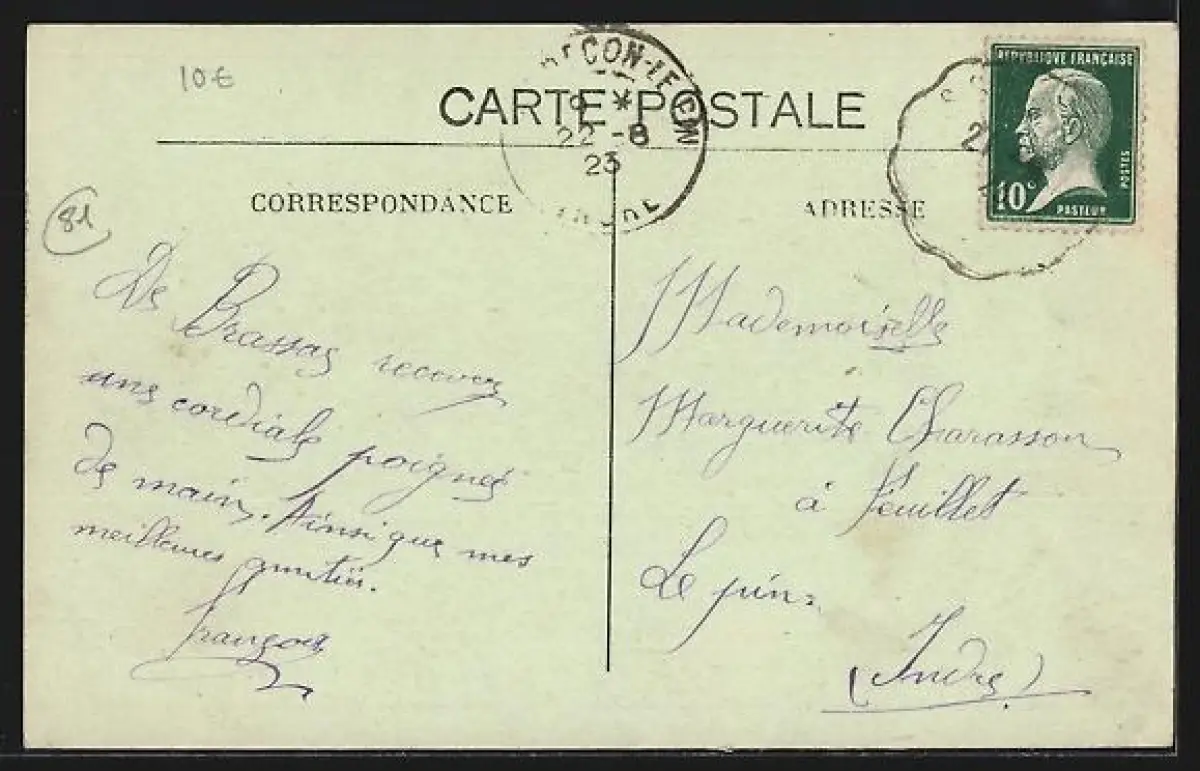 10€
CARTE POSTALE
22-8
23
REPUBLIQUE FRANÇAISE
POSTES
10c
PASTEUR
81
CORRESPONDANCE
De Brassac recevez
une cordiale poignée
de main. Ainsi que mes
meilleures amitiés.
François
ADRESSE
Mademoiselle
Marguerite Charasson
à
Le pin
(Indre)